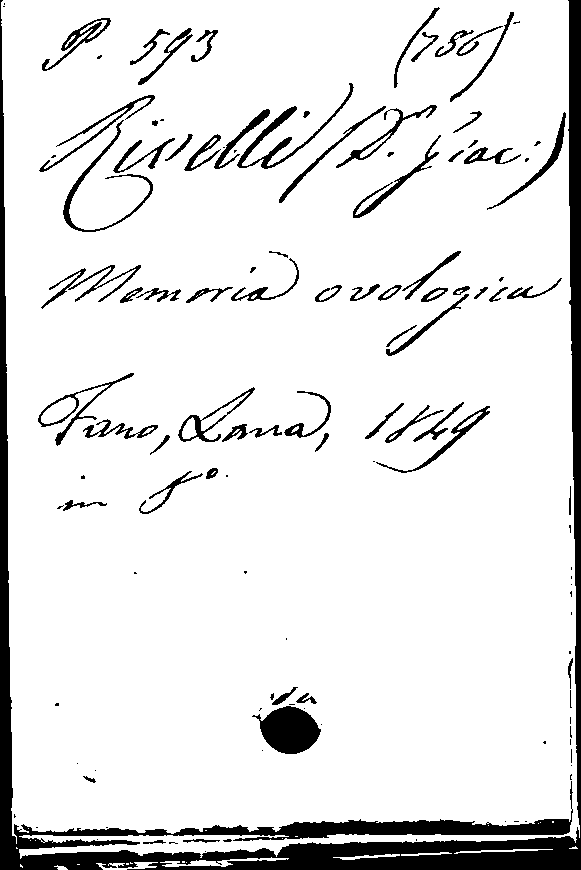 P. 593 (786)
Rivelli (D.r Giac:)
Memoria ovologica
Fano, Lana, 1849
in 8°